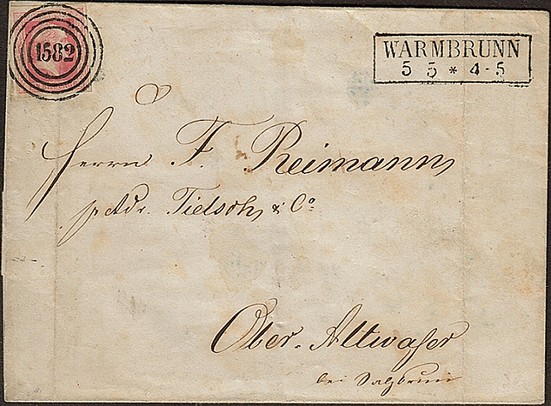 1582
WARMBRUNN
5 5 * 4-5
Herrn F. Reimann,
p. Adr. Tielsch & Co
Ober-Altwaſser
bei Salzbrunn